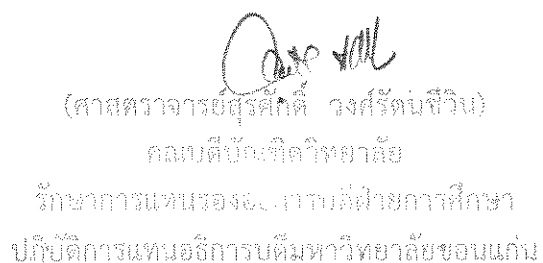 (ศาสตราจารย์สุรศักดิ์ วงศ์รัตนชีวิน)
คณบดีบัณฑิตวิทยาลัย
รักษาการแทนรองอธิการบดีฝ่ายการศึกษา
ปฏิบัติการแทนอธิการบดีมหาวิทยาลัยขอนแก่น